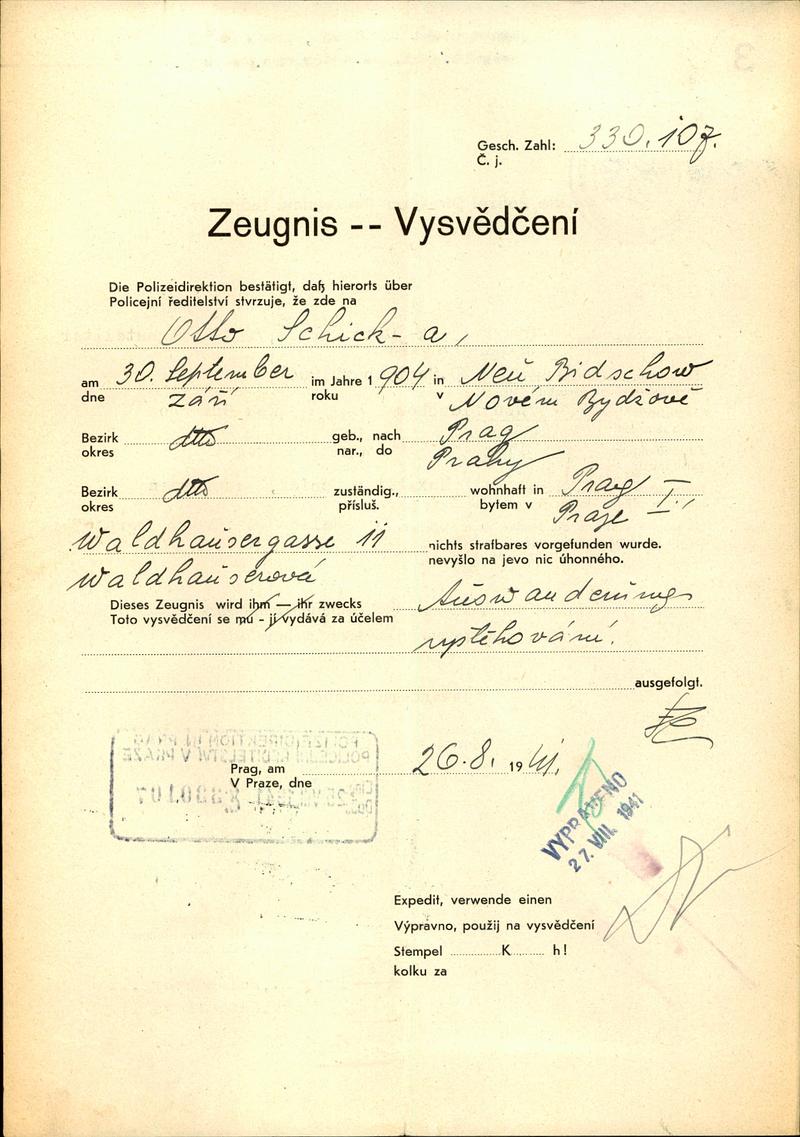 Gesch. Zahl: 330.107.
Č. j.
Zeugnis -- Vysvědčení
Die Polizeidirektion bestätigt, daß hierorts über
Policejní ředitelství stvrzuje, že zde na
Otto Schick-a,
am 30. September im Jahre 1 904 in Neu Bidschow
dne září roku v Novém Bydžově
Bezirk dtto geb., nach Prag
okres nar., do Prahy
Bezirk dtto zuständig., wohnhaft in Prag I.,
okres přísluš. bytem v Praze
Waldhausergasse 11 nichts strafbares vorgefunden wurde.
Waldhauserová nevyšlo na jevo nic úhonného.
Dieses Zeugnis wird ihm — ihr zwecks Auswanderung
Toto vysvědčení se mu - jí vydává za účelem
vystěhování.
ausgefolgt.
POLIZEIDIREKTION IN PRAG
POLICEJNÍ ŘEDITELSTVÍ V PRAZE
330107
Prag, am 26.8. 19 41.
V Praze, dne
VYPRAVENO
27. VIII. 1941
Expedit, verwende einen
Výpravno, použij na vysvědčení
Stempel K h!
kolku za